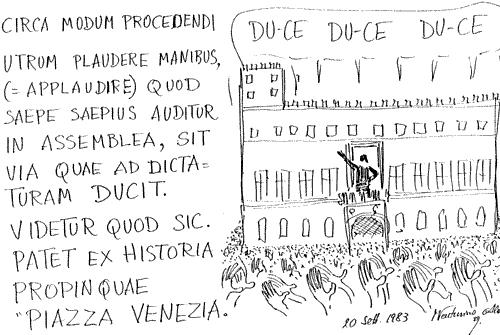 CIRCA MODUM PROCEDENDI
UTRUM PLAUDERE MANIBUS,
(= APPLAUDIRE) QUOD
SAEPE SAEPIUS AUDITUR
IN ASSEMBLEA, SIT
VIA QUAE AD DICTA=
TURAM DUCIT.
VIDETUR QUOD SIC.
PATET EX HISTORIA
PROPINQUAE
"PIAZZA VENEZIA.
DU-CE DU-CE DU-CE
20 Sett. 1983